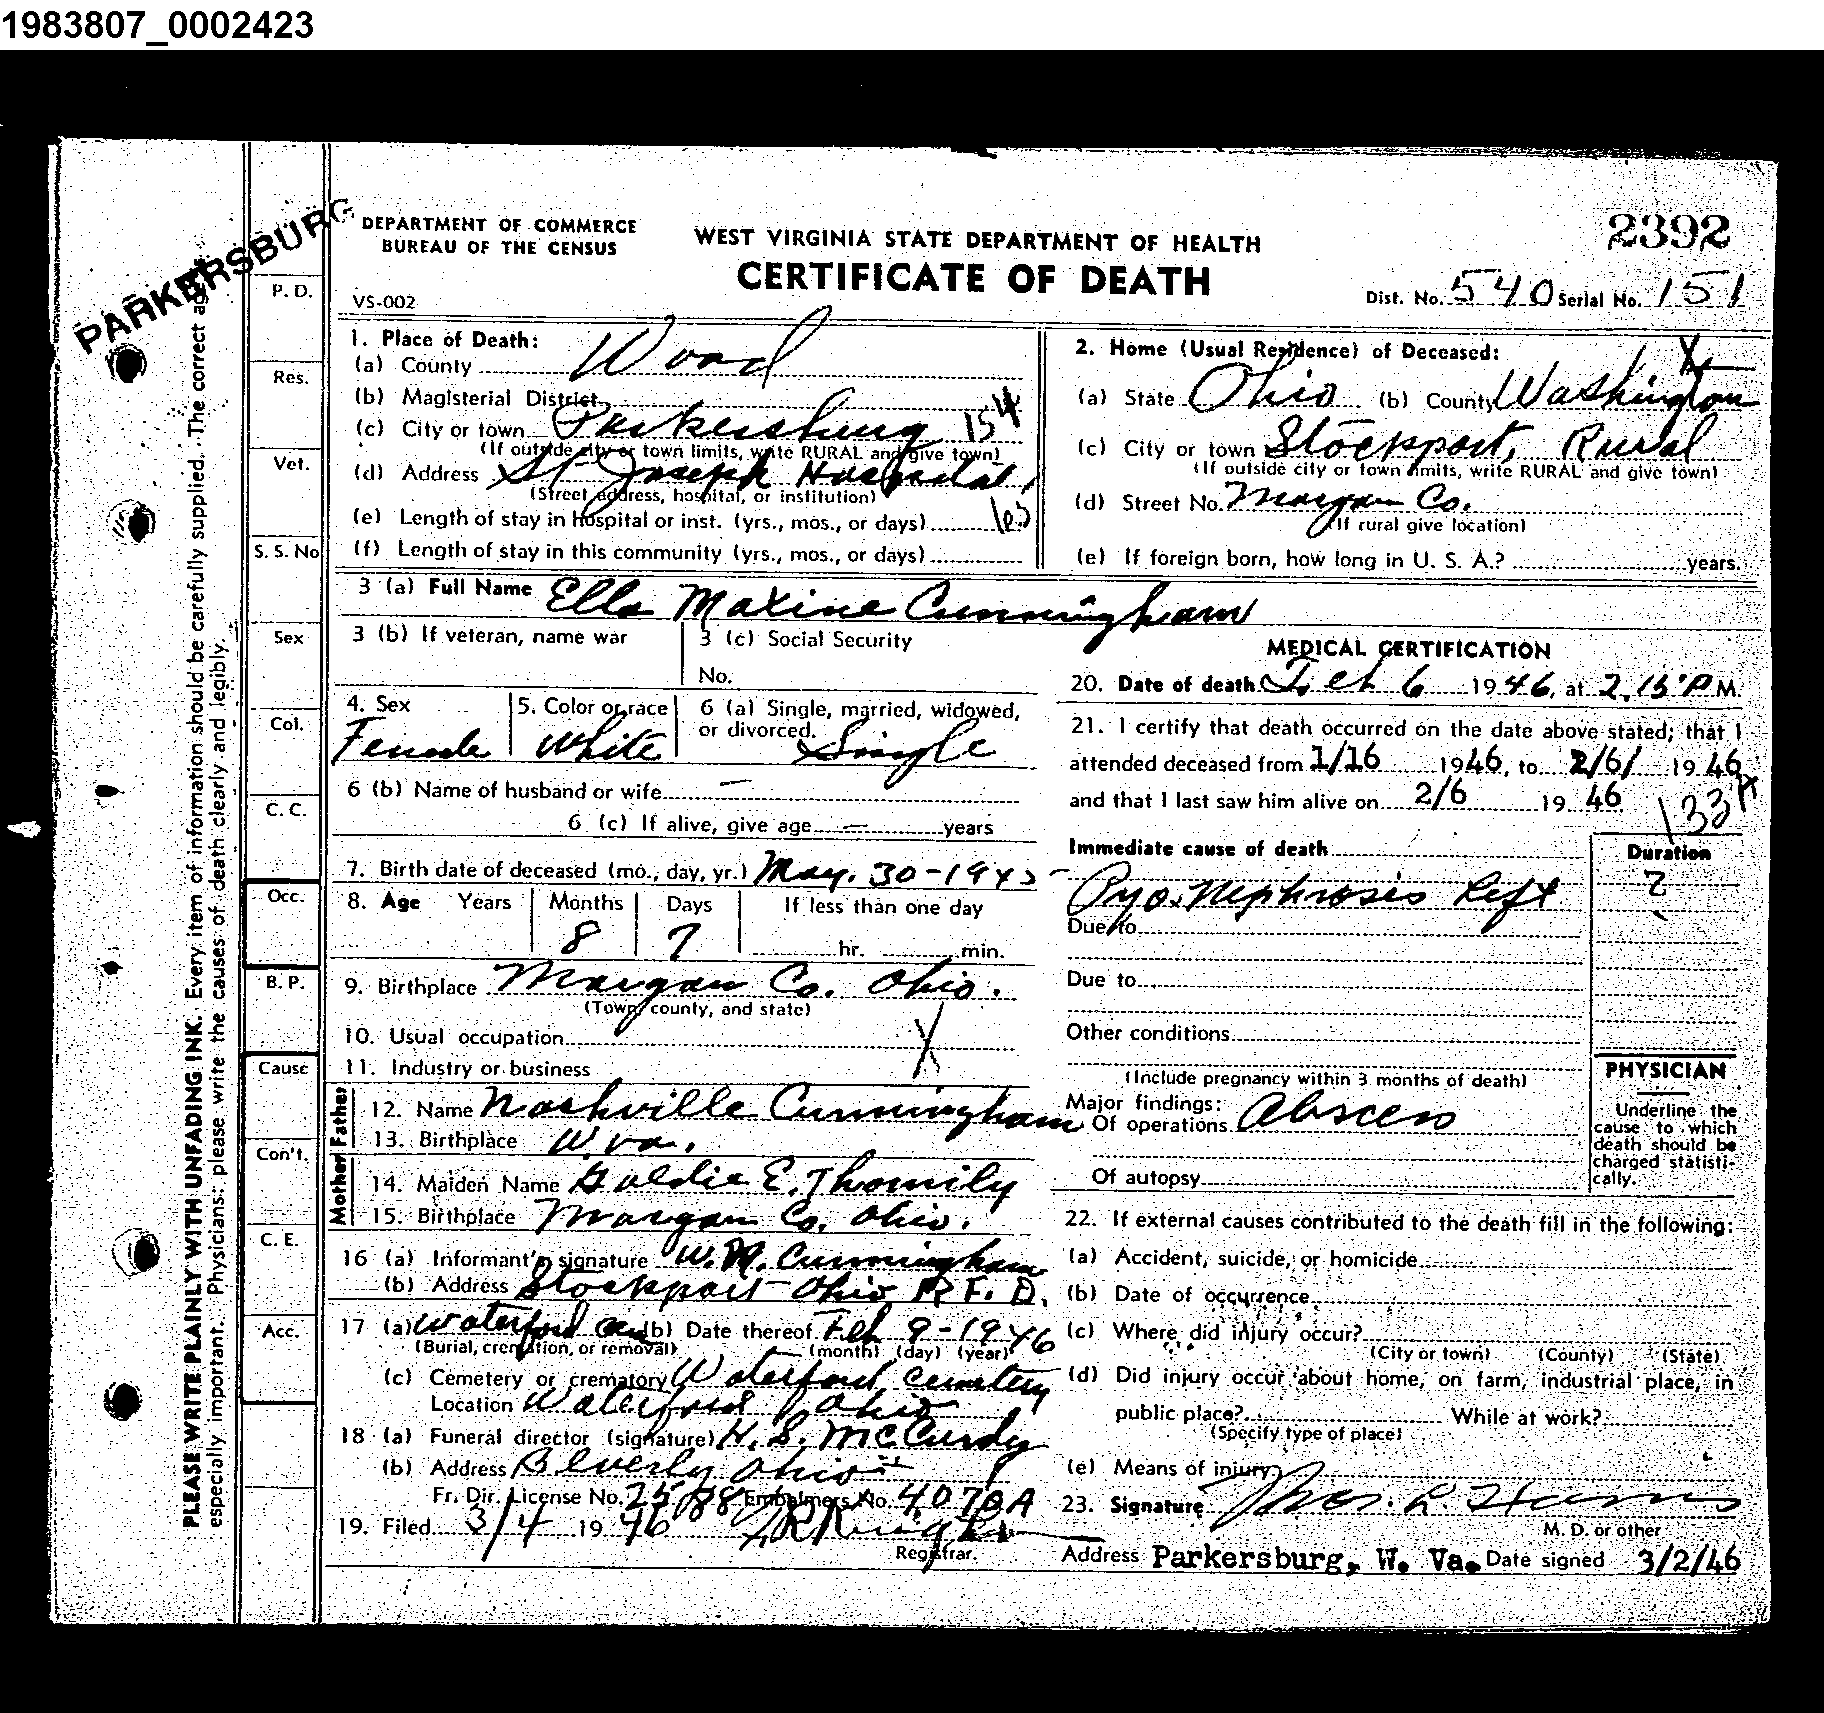 1983807_0002423
PARKERSBURG
DEPARTMENT OF COMMERCE
BUREAU OF THE CENSUS
WEST VIRGINIA STATE DEPARTMENT OF HEALTH
CERTIFICATE OF DEATH
2392
VS-002
Dist. No. 540 Serial No. 151
PLEASE WRITE PLAINLY WITH UNFADING INK. Every item of information should be carefully supplied. The correct age
especially important. Physicians: please write the causes of death clearly and legibly.
P. D.
Res.
Vet.
S. S. No
Sex
Col.
C. C.
Occ.
B. P.
Cause
Con't.
C. E.
Acc.
1. Place of Death:
(a) County Wood
(b) Magisterial District
(c) City or town Parkersburg 154
(If outside city or town limits, write RURAL and give town)
(d) Address St. Joseph Hospital,
(Street address, hospital, or institution)
(e) Length of stay in hospital or inst. (yrs., mos., or days)
(f) Length of stay in this community (yrs., mos., or days)
2. Home (Usual Residence) of Deceased: X
(a) State Ohio (b) County Washington
(c) City or town Stockport, Rural
(If outside city or town limits, write RURAL and give town)
(d) Street No. Morgan Co.
(If rural give location)
(e) If foreign born, how long in U. S. A.? years.
3 (a) Full Name Ella Maxine Cunningham
3 (b) If veteran, name war
3 (c) Social Security
No.
4. Sex
Female
5. Color or race
White
6 (a) Single, married, widowed,
or divorced. Single
6 (b) Name of husband or wife —
6 (c) If alive, give age — years
7. Birth date of deceased (mo., day, yr.) May. 30-1945
8. Age Years Months Days If less than one day
8 7 hr. min.
9. Birthplace Morgan Co. Ohio.
(Town, county, and state)
10. Usual occupation X
11. Industry or business
Father
12. Name Nashville Cunningham
13. Birthplace W.va.
Mother
14. Maiden Name Goldie E. Thornily
15. Birthplace Morgan Co. Ohio.
16 (a) Informant's signature W. N. Cunningham
(b) Address Stockport Ohio R F. D.
17 (a) Waterford (b) Date thereof Feb 9-1946
(Burial, cremation, or removal) (month) (day) (year)
(c) Cemetery or crematory Waterford Cemetery
Location Waterford Ohio
18 (a) Funeral director (signature) H. S. McCurdy
(b) Address Beverly Ohio
Fr. Dir. License No. 2588 Embalmers No. 4070A
19. Filed 3/4 1946
Registrar.
MEDICAL CERTIFICATION
20. Date of death Feb 6 1946, at 2.15 P M.
21. I certify that death occurred on the date above stated; that I
attended deceased from 1/16 1946, to 2/6/ 1946
and that I last saw him alive on 2/6 1946
Immediate cause of death
Pyo. Nephrosis Left
Duration
?
Due to
Due to
Other conditions
(Include pregnancy within 3 months of death)
Major findings:
Of operations Abscess
Of autopsy
PHYSICIAN
Underline the
cause to which
death should be
charged statisti-
cally.
22. If external causes contributed to the death fill in the following:
(a) Accident, suicide, or homicide
(b) Date of occurrence
(c) Where did injury occur?
(City or town) (County) (State)
(d) Did injury occur about home, on farm, industrial place, in
public place? While at work?
(Specify type of place)
(e) Means of injury
23. Signature Thos. L. Harris
M. D. or other
Address Parkersburg, W. Va. Date signed 3/2/46